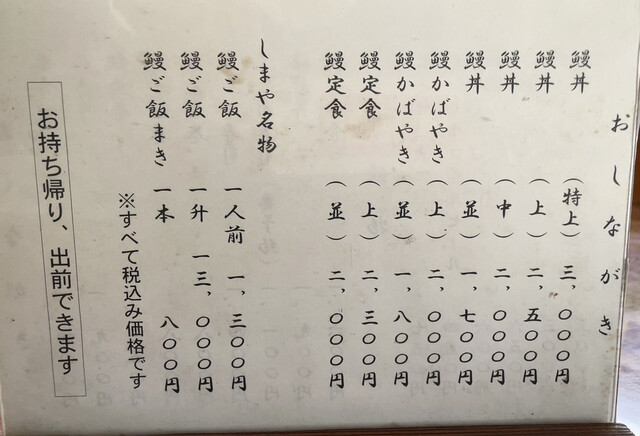 おしながき
鰻丼（特上）三、〇〇〇円
鰻丼（上）二、五〇〇円
鰻丼（中）二、〇〇〇円
鰻丼（並）一、七〇〇円
鰻かばやき（上）二、〇〇〇円
鰻かばやき（並）一、八〇〇円
鰻定食（上）二、三〇〇円
鰻定食（並）二、〇〇〇円
しまや名物
鰻ご飯 一人前 一、三〇〇円
鰻ご飯 一升 一三、〇〇〇円
鰻ご飯まき 一本 八〇〇円
※すべて税込み価格です
お持ち帰り、出前できます